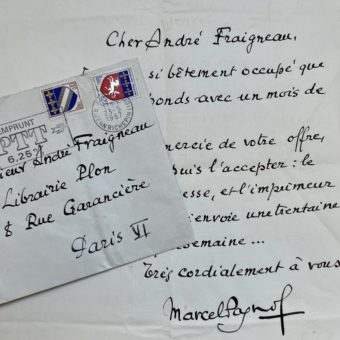 Cher André Fraigneau,
si bêtement occupé que
onds avec un mois de
mercie de votre offre,
uis l'accepter : le
esse, et l'imprimeur
envoie une trentaine
semaine ...
Très cordialement à vous
Marcel Pagnol
EMPRUNT
PTT
6,25%
1967
ieur André Fraigneau
Librairie Plon
8 Rue Garancière
Paris VI